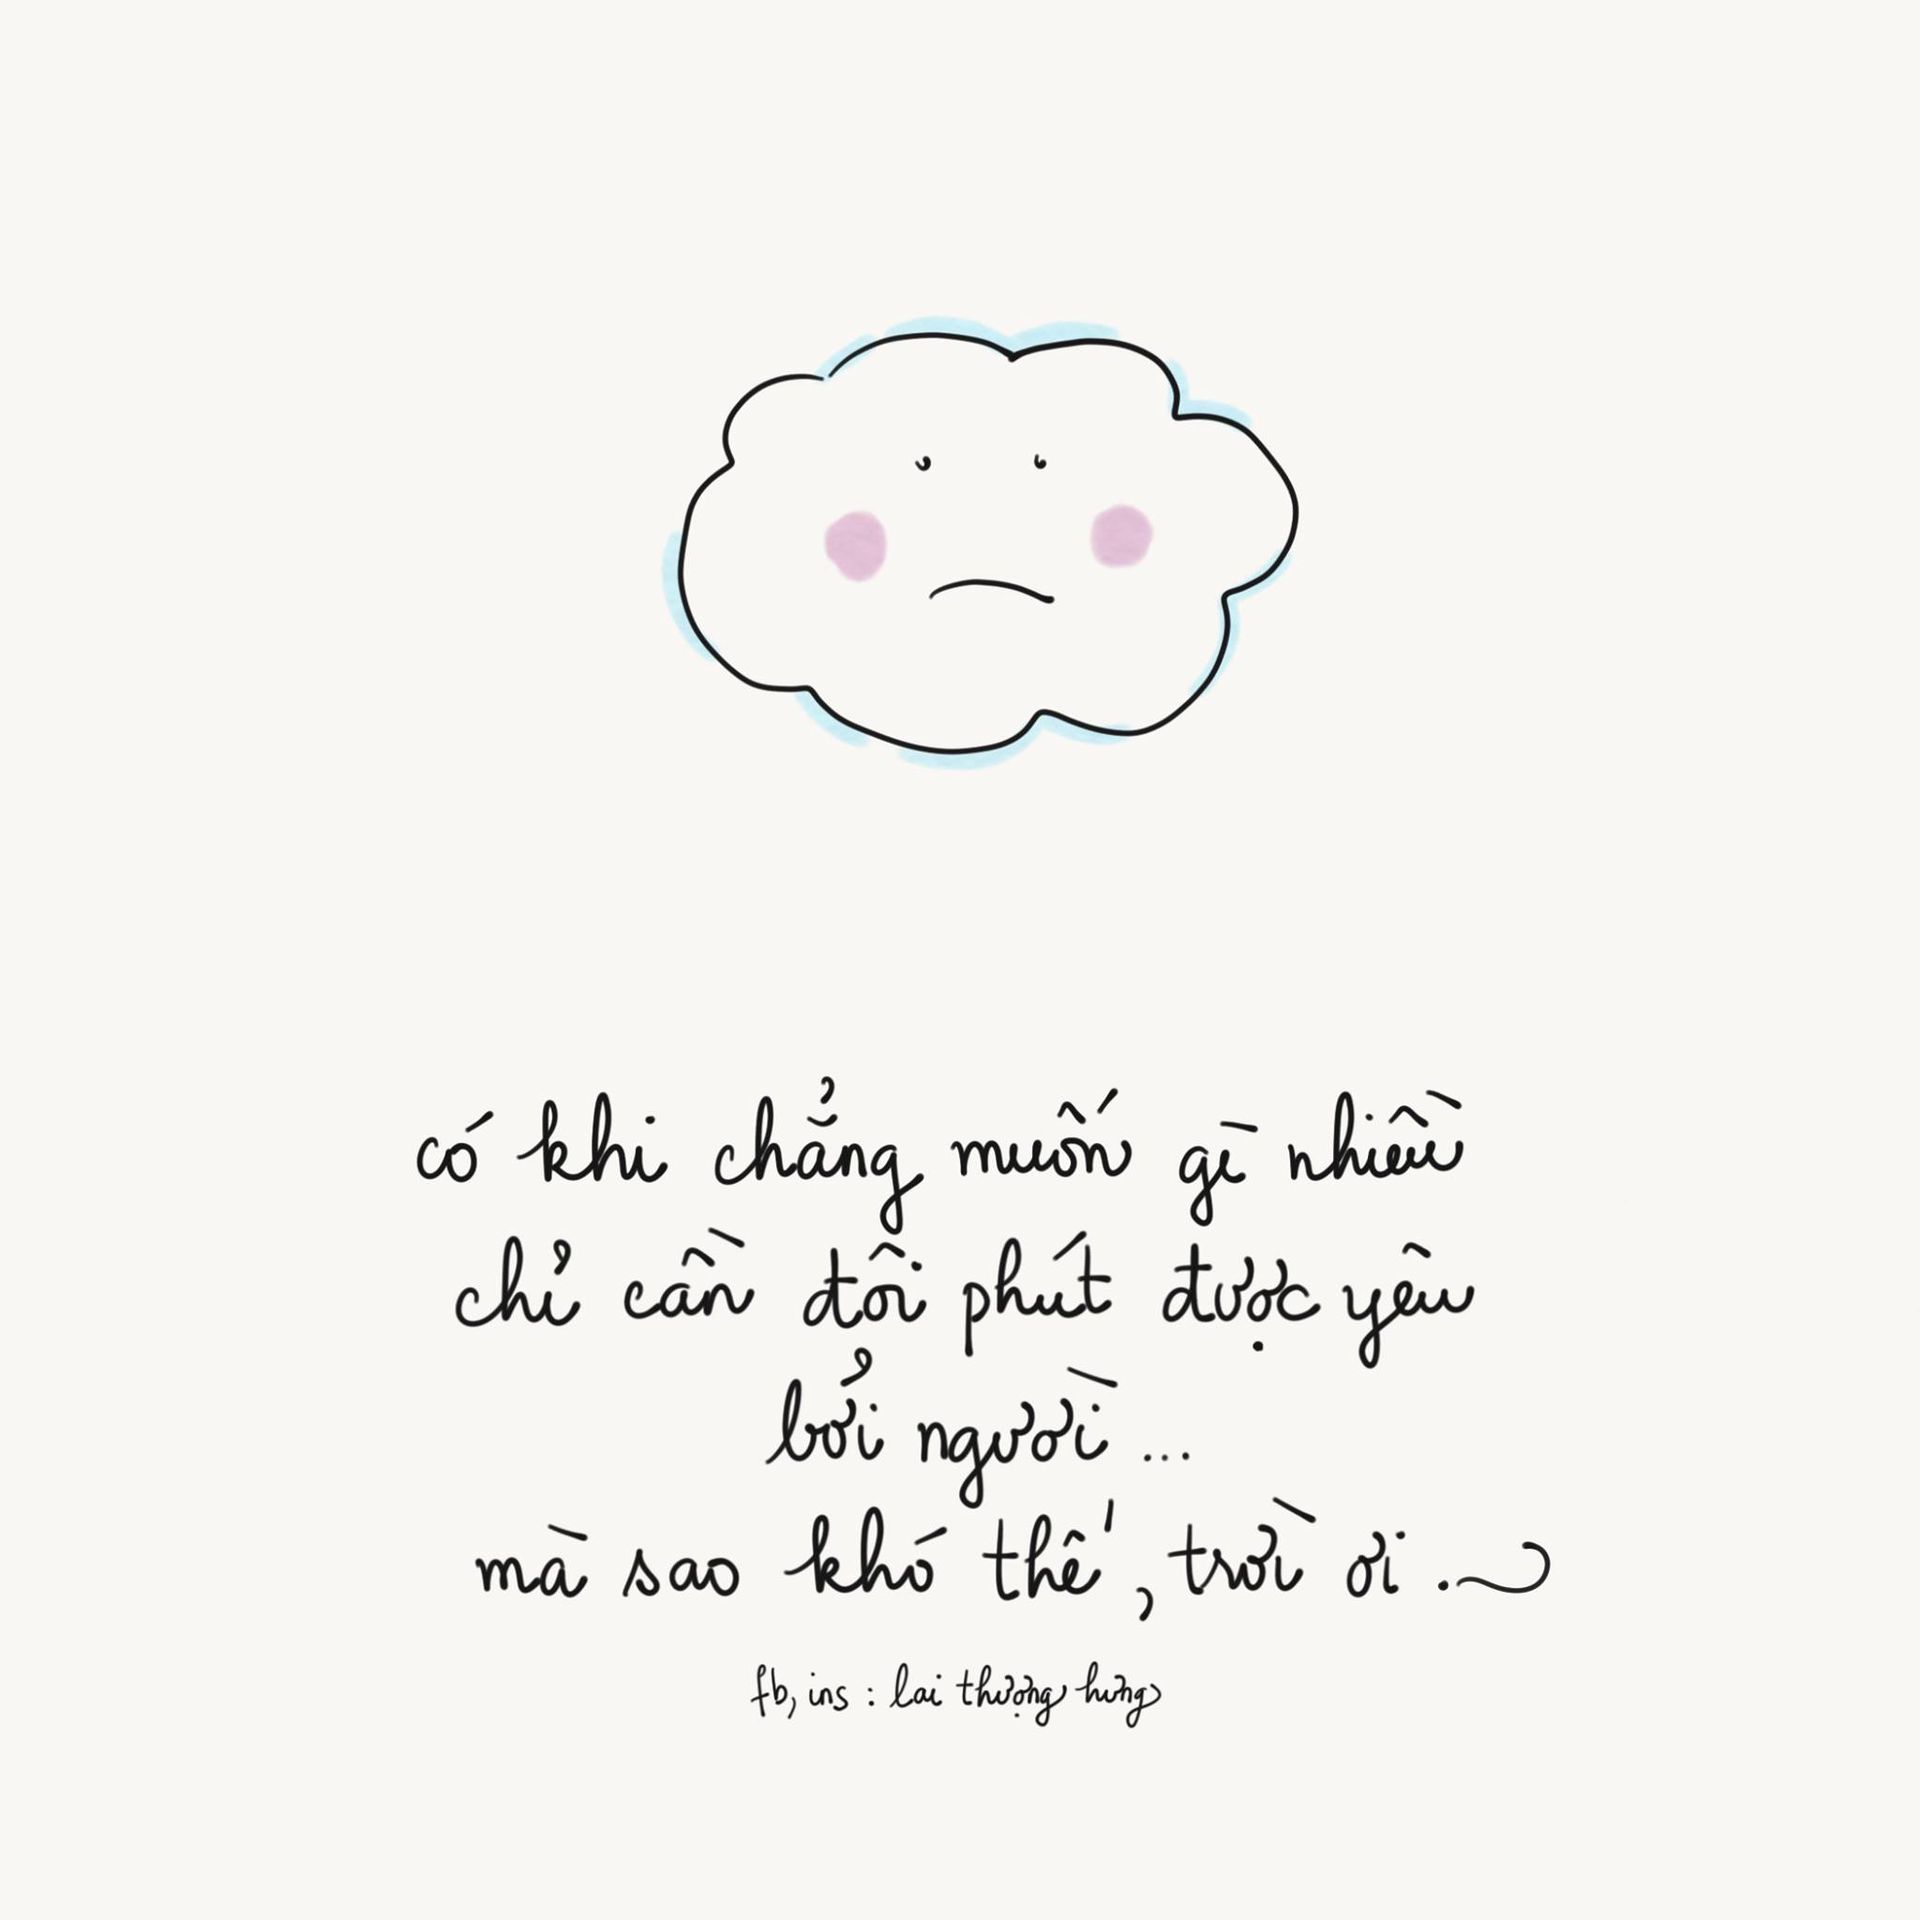 có khi chẳng muốn gì nhiều
chỉ cần đôi phút được yêu
bởi người ...
mà sao khó thế , trời ơi .
fb, ins : lai thượng hưng